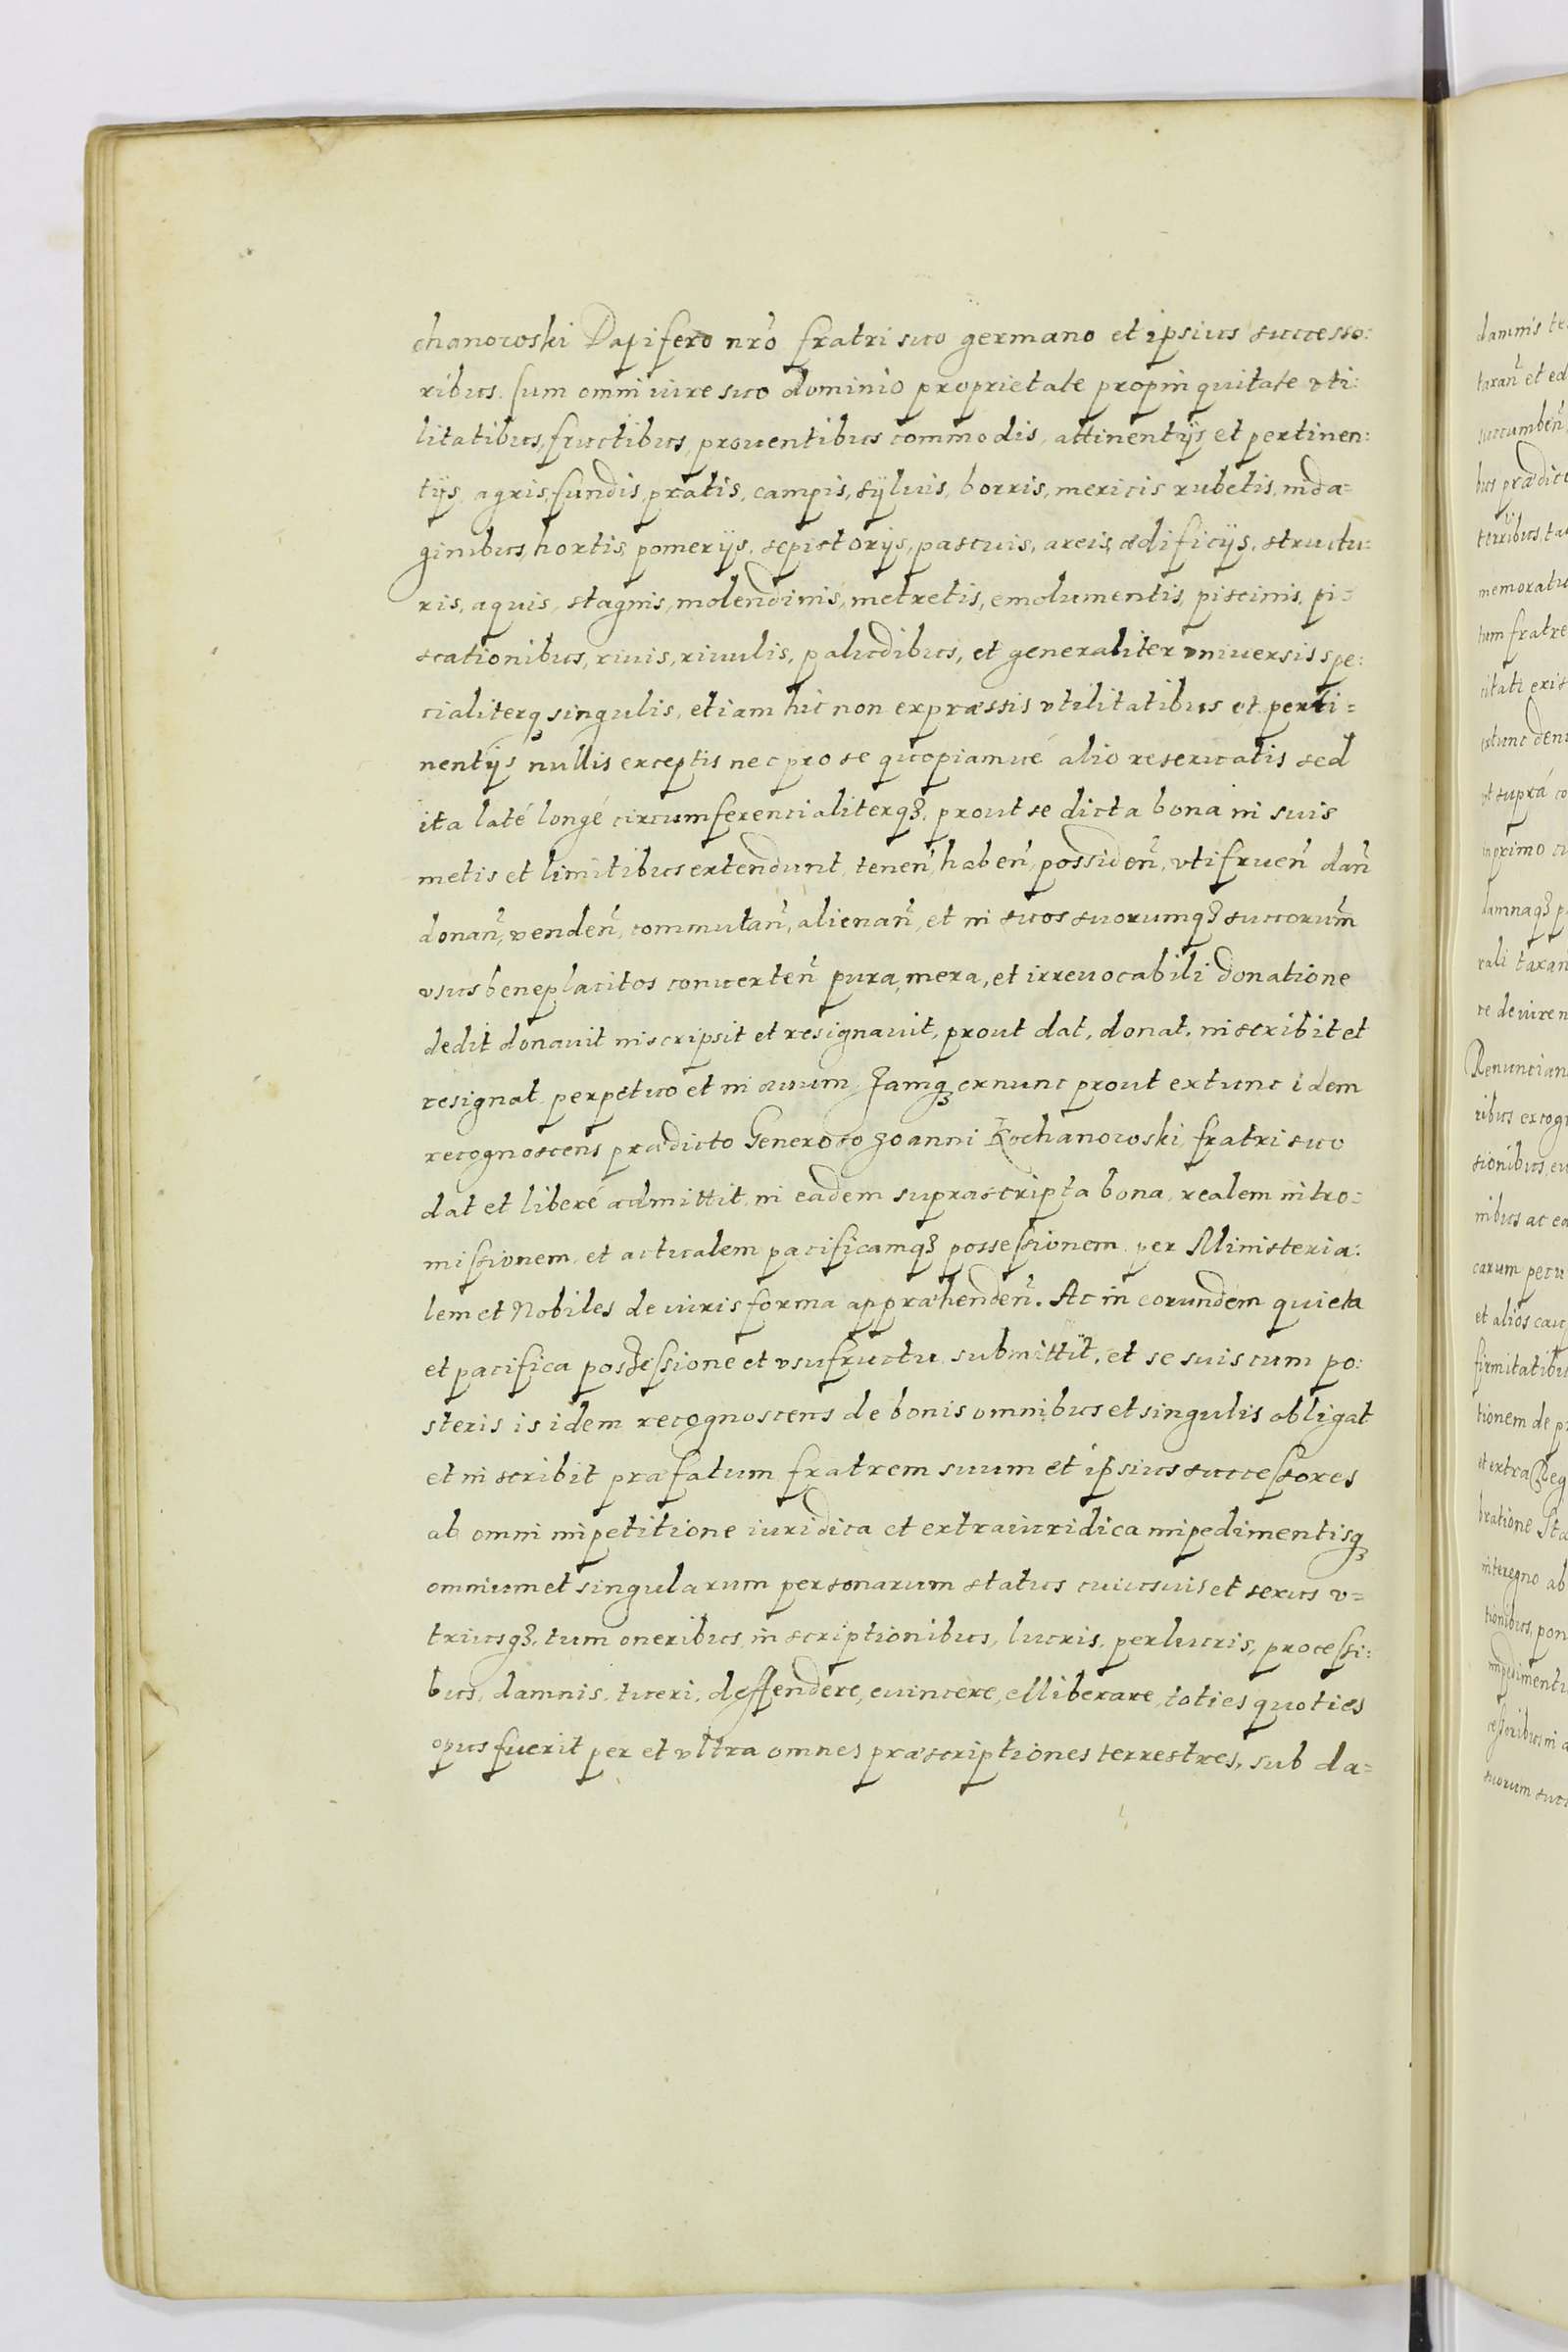 chanowski Dapifero nr̃o fratri suo germano et ipsius successo:
ribus. Cum omni iure suo dominio proprietate propinquitate vti:
litatibus, fructibus, prouentibus commodis, attinentijs et pertinen:
tijs, agris, fundis, pratis, campis, syluis, borris, mericis rubetis, inda=
ginibus, hortis, pomerijs, sepistorijs, pascuis, areis, ædificijs, structu:
ris, aquis, stagnis, molendinis, metretis, emolumentis, piscinis, pi:
scationibus, riuis, riuulis, paludibus, et generaliter vniuersis spe:
cialiterq singulis, etiam hic non expræssis vtilitatibus et perti=
nentijs nullis exceptis nec pro se quopiamué alio reseruatis sed
ita laté longé circumferencialiterqꝫ, prout se dicta bona in suis
metis et limitibus extendunt, teneñ, habeñ, possideñ, vtifrueñ dañ
donañ, vendeñ, commutañ, alienañ, et in suos suorumqꝫ succorum̃
vsus beneplacitos conuerteñ pura, mera, et irreuocabili donatione
dedit donauit inscripsit et resignauit, prout dat, donat, inscribit et
resignat perpetuo et in æuum. Jamqꝫ exnunc prout extunc idem
recognoscens prædicto Generoso Joanni Kochanowski, fratri suo
dat et liberé admittit, in eadem suprascripta bona, realem intro:
missionem, et actualem pacificamqꝫ possessionem per Ministeria:
lem et Nobiles de iuris forma appræhendeñ. Ac in eorundem quieta
et pacifica possessione et vsufructu submittit, et se suis cum po:
steris is idem recognoscens de bonis omnibus et singulis obligat
et inscribit præfatum fratrem suum et ipsius successores
ab omni impetitione iuridica et extraiuridica impedimentisqꝫ
omnium et singularum personarum status cuiusuis et sexus v=
triusqꝫ, tum oneribus, inscriptionibus, lucris, perlucris, processi:
bus, damnis, tueri, deffendere, euincere, elliberare, toties quoties
opus fuerit per et vltra omnes præscriptiones terrestres, sub da=